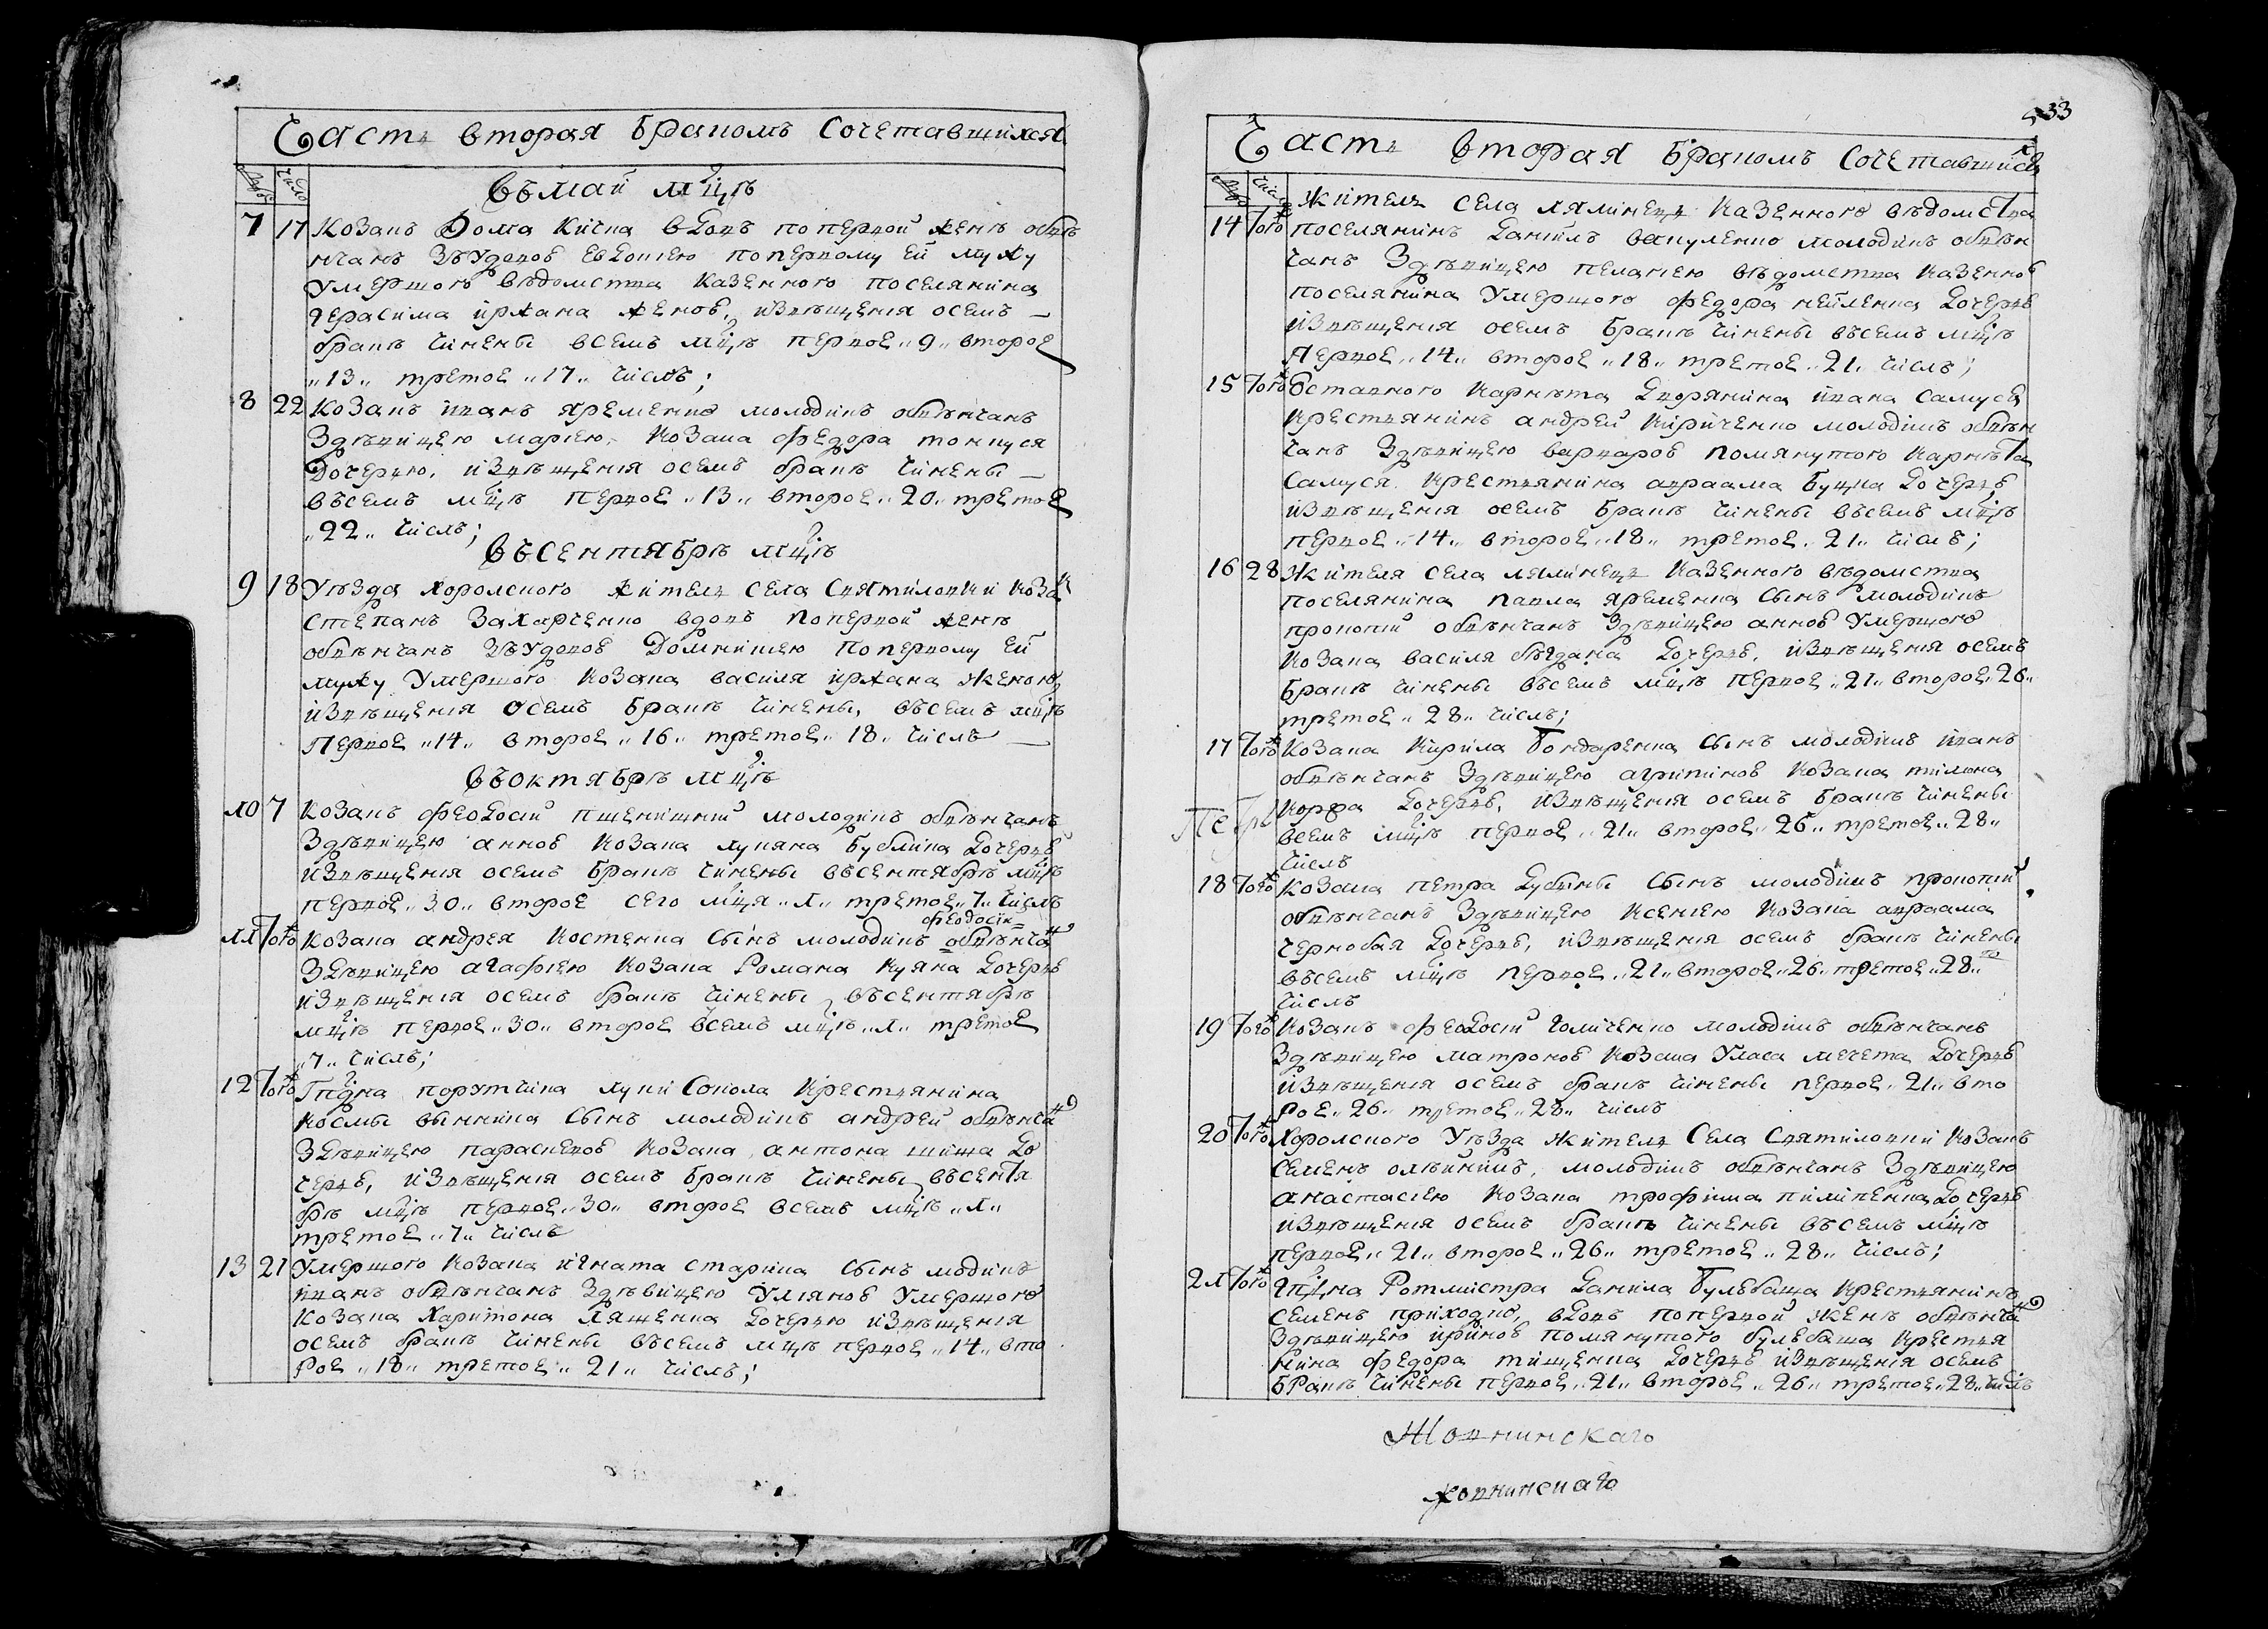 Часть вторая бракомъ сочетавшихся
число
въ май мцѣ
7 17 Козакъ Фома Кичка вдовъ по первой женѣ обвѣ
нчанъ зъ удовоѣ Евдокиею по первому ей мужу
умершого вѣдомства казенного поселянина
Герасима иржака женоѣ, извѣщения осемъ
бракѣ чинены всемъ мцѣ первое „9„ второе
„13„ третое „17„ числъ;
8 22 Козакъ иванъ яременко молодикъ обвѣнчанъ
здѣвицею мариею, козака федора
дочерью, извѣщения осемъ бракѣ чинены
въсемъ мцѣ первое „13„ второе „20„ третое
„22„ числъ;
въсентябрѣ мцѣ
9 18 Уѣзда хоролского жителъ села святиловки козак
степанъ захарченко вдовъ по первой женѣ
обвѣнчанъ зъ удовоѣ Домникиею по первому ей
мужу умершого козака василя иржака женою,
извѣщения осемъ бракѣ чинены, въсемъ мцѣ
первое „14„ второе „16„ третое „18„ числъ
въоктябрѣ мцѣ
10 7 Козакъ феодосий пшеничний молодикъ обвѣнчанъ
здѣвицею анноѣ козака лукяна бублика дочеръѣ
извѣщения осемъ бракѣ чинены въсентябрѣ мцѣ
первое „30„ второе сего мця „1„ третое „7„ числъ
феодосік
11 Того Козака андрея костенка сынъ молодикъ обвѣнчан
здѣвицею агафиею козака Романа куяна дочеръѣ
извѣщения осемъ бракѣ чинены, въсентябрѣ
мцѣ первое „30„ второе всемъ мцѣ „1„ третое
„7„ числъ;
12 Того Гпдна порутчика луки Сокола крестьянина
космы вынника сынъ молодикъ андрей обвѣнчан
здѣвицею параскевоѣ козака антона шиша до
черъѣ, извѣщения осемъ бракѣ чинены, въсентя
брѣ мцѣ первое „30„ второе всемъ мцѣ „1„
третое „7„ числъ
13 21 Умершого козака игната старика сынъ модикъ
иванъ обвѣнчанъ здѣвицею улияноѣ умершого
козака харитона лященка дочерью извѣщения
осемъ бракѣ чинены въсемъ мцѣ первое „14„ вто
рое „18„ третое „21„ числъ;
33
Часть вторая бракомъ сочетавшихся
жителъ села лялинецъ казенного вѣдомства
14 Того поселянинъ данилъ вакуленко молодикъ обвѣн
чанъ здѣвицею пелагиею вѣдомства казенного
поселянина умершого федора дочеръѣ
извѣщения осемъ бракѣ чинены въсемъ мцѣ
Первое „14„ второе „18„ третое „21„ числъ;
15 Того Отставного карнѣта дворянина ивана самуся
крестьянинъ андрей кириченко молодикъ обвѣн
чанъ здѣвицею варвароѣ помянутого карнѣта
самуся крестьянина авраама дочеръѣ
извѣщения осемъ бракѣ чинены въсемъ мцѣ
первое „14„ второе „18„ третое „21„ числъ;
16 28 Жителя села лялинецъ казенного вѣдомства
поселянина павла яременка сынъ молодикъ
прокопий обвѣнчанъ здѣвицею анноѣ умершого
козака василя дочеръѣ, извѣщения осемъ
бракѣ чинены въсемъ мцѣ первое „21„ второе „26„
третое „28„ числъ;
17 Того Козака кирила бондаренка сынъ молодикъ иванъ
обвѣнчанъ здѣвицею агрипиноѣ козака тилька
коржа дочеръѣ, извѣщения осемъ бракѣ чинены
всемъ мцѣ первое „21„ второе „26„ третое „28„
числъ
18 Того Козака петра дубины сынъ молодикъ прокопий
обвѣнчанъ здѣвицею ксениею козака авраама
чернобая дочеръѣ, извѣщения осемъ бракѣ чинены
въсемъ мцѣ первое „21„ второе „26„ третое „28„
числъ
19 Того Козакъ феодосий голиченко молодикъ обвѣнчанъ
здѣвицею матроноѣ козака уласа мечета дочеръѣ
извѣщения осемъ бракѣ чинены первое „21„ вто
рое „26„ третое „28„ числъ
20 Того Хоролского уѣзда жителъ села святиловки козакъ
семенъ олѣйникъ, молодикъ обвѣнчанъ здѣвицею
анастасиею козака трофима пилипенка дочеръѣ
извѣщения осемъ бракѣ чинены въсемъ мцѣ
первое „21„ второе „26„ третое „28„ числъ;
21 Того гпдна Ротмистра данила булюбаша крестьянинъ
семенъ приходко, вдовъ по первой женѣ обвѣнчан
здѣвицею ириноѣ помянутого булюбаша крестья
нина федора тищенка дочеръѣ извѣщения осемъ
бракѣ чинены первое „21„ второе „26„ третое „28„ числъ
Жовнинскаго
жовнинскаго